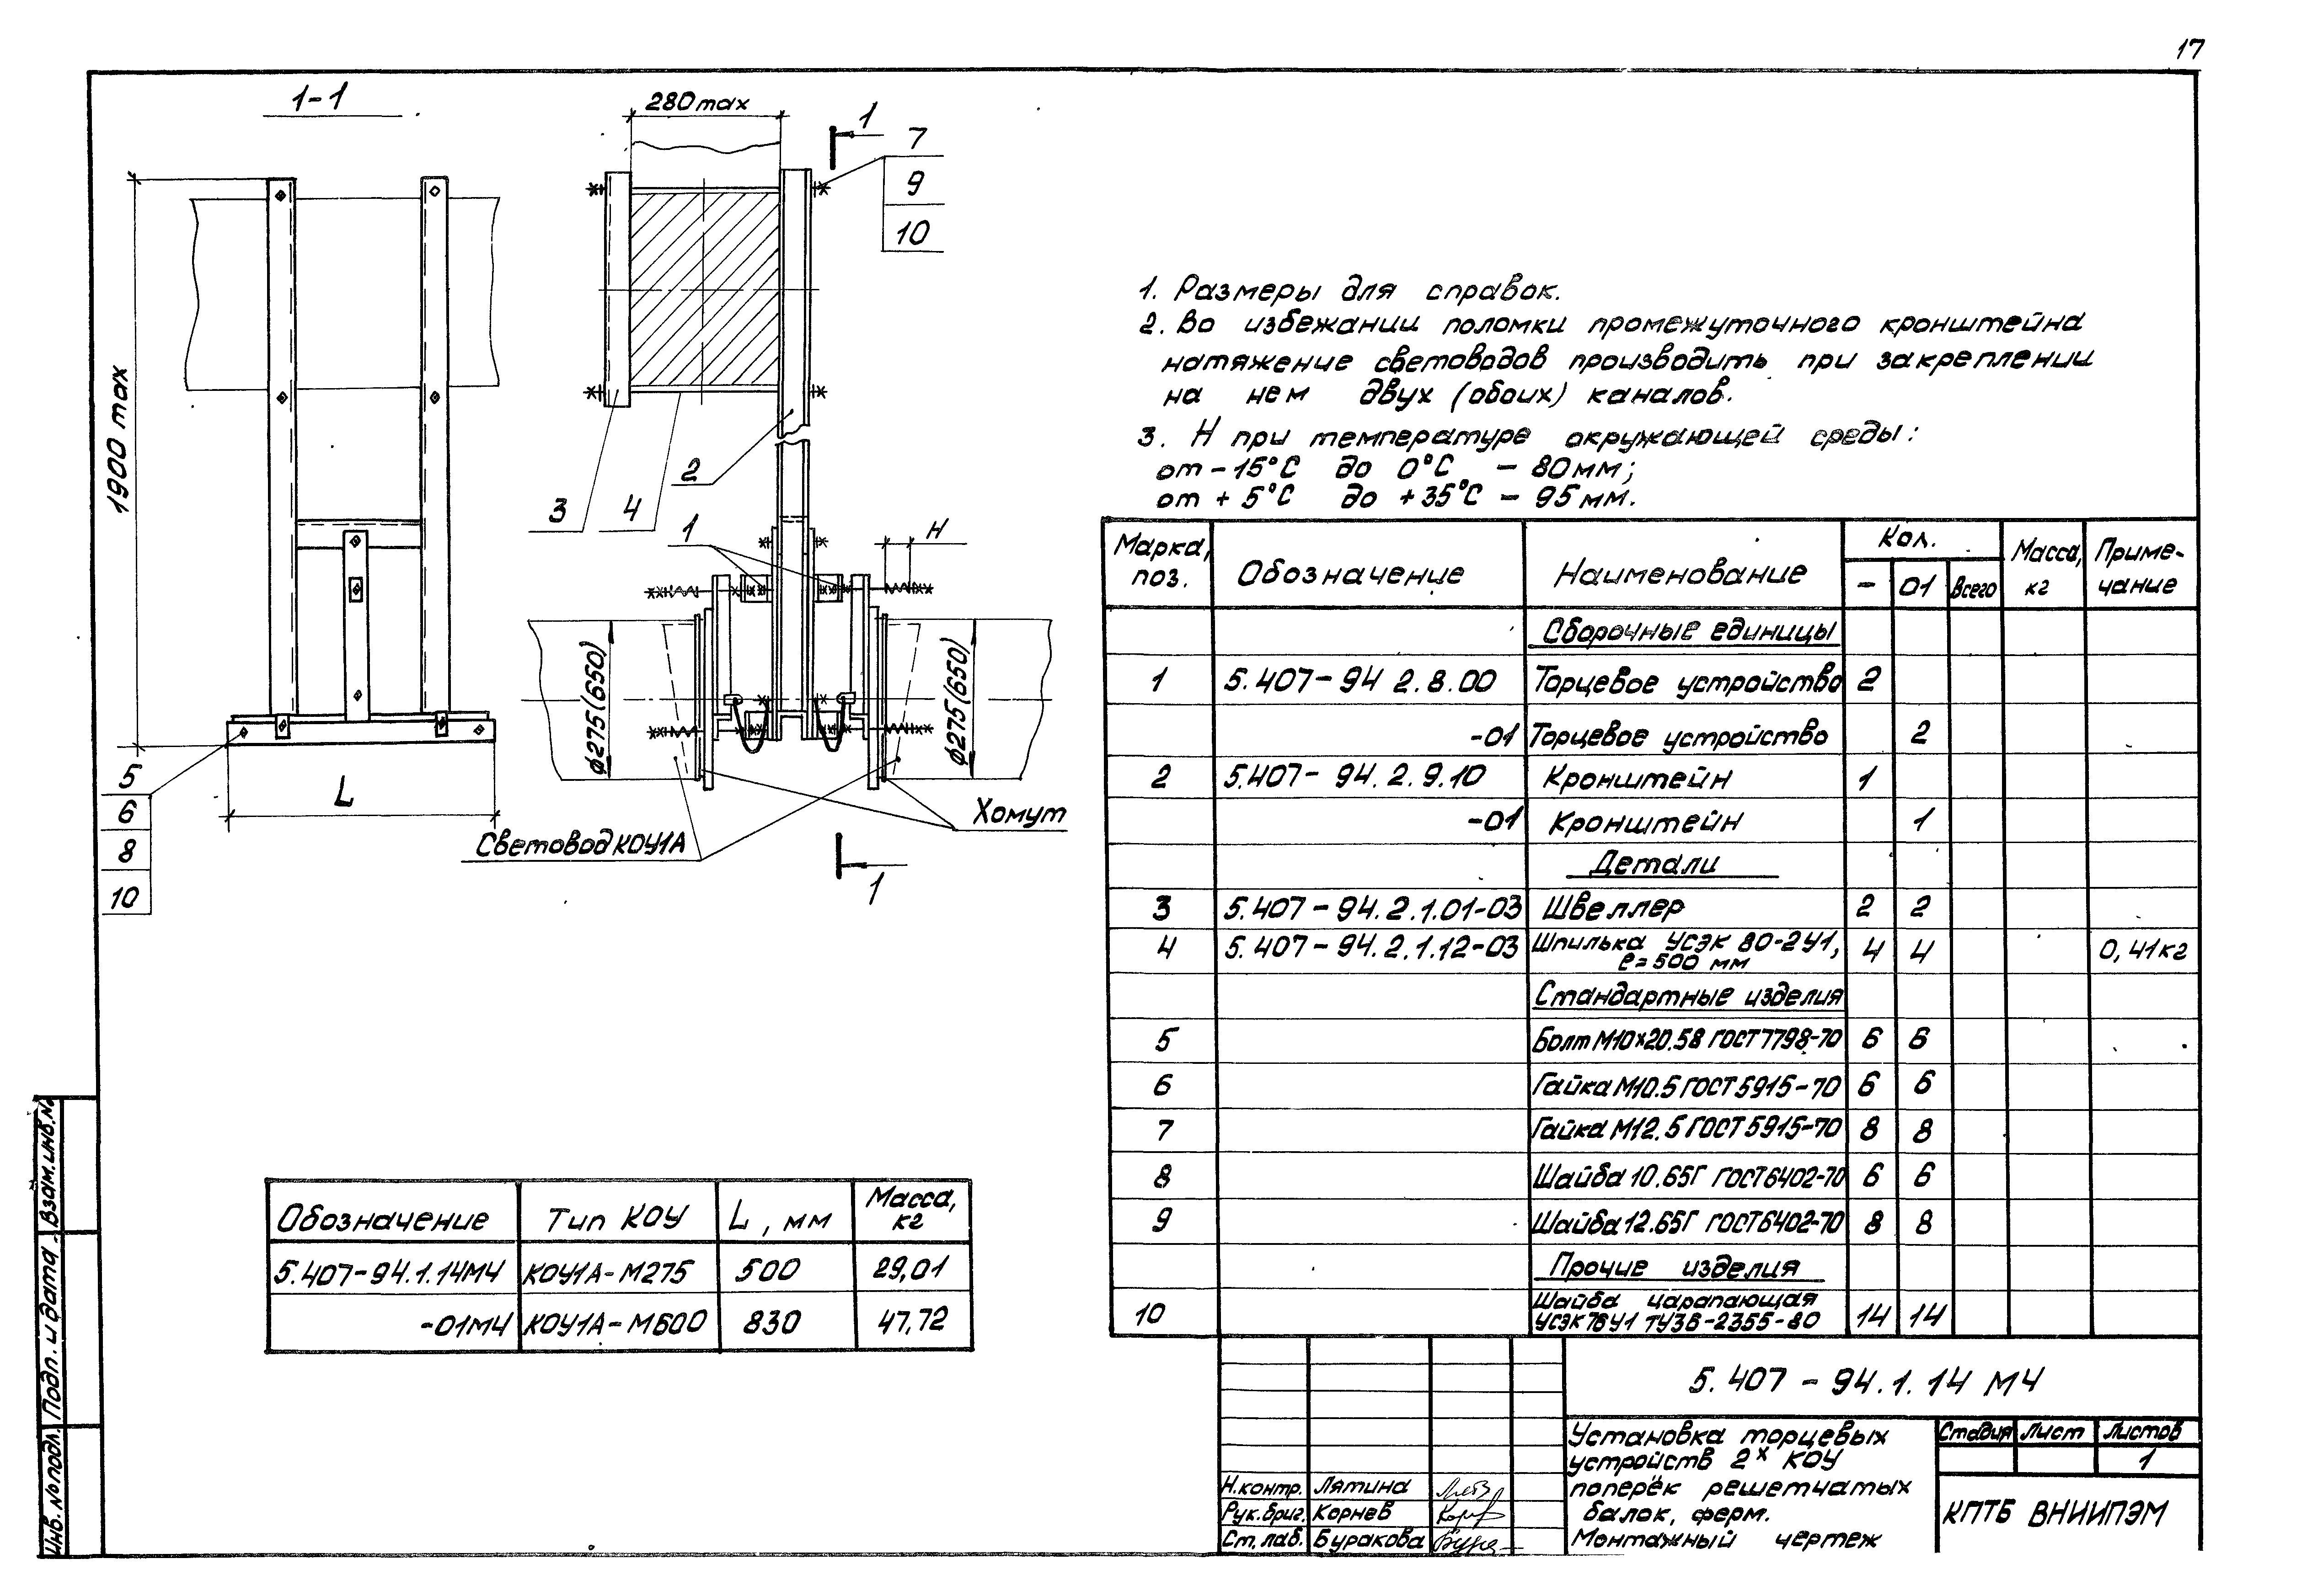 17
1-1
280 max
1
7
9
10
1900 max
3
4
2
1
H
ф275(650)
ф275(650)
Хомут
Световод КОУ1А
1
L
5
6
8
10
1. Размеры для справок.
2. Во избежании поломки промежуточного кронштейна
натяжение световодов производить при закреплении
на нем двух (обоих) каналов.
3. Н при температуре окружающей среды:
от -15°С до 0°С - 80мм;
от +5°С до +35°С - 95мм.
Марка, поз. Обозначение Наименование Кол. Масса, кг Приме-чание
- 01 Всего
Сборочные единицы
1 5.407-94 2.8.00 Торцевое устройство 2
-01 Торцевое устройство 2
2 5.407-94.2.9.10 Кронштейн 1
-01 Кронштейн 1
Детали
3 5.407-94.2.1.01-03 Швеллер 2 2
4 5.407-94.2.1.12-03 Шпилька УСЭК 80-2У1, 4 4 0,41кг
ℓ=500 мм
Стандартные изделия
5 Болт М10х20.58 ГОСТ 7798-70 6 6
6 Гайка М10.5 ГОСТ 5915-70 6 6
7 Гайка М12.5 ГОСТ 5915-70 8 8
8 Шайба 10.65Г ГОСТ 6402-70 6 6
9 Шайба 12.65Г ГОСТ 6402-70 8 8
Прочие изделия
10 Шайба царапающая 14 14
УСЭК 76У1 ТУ36-2355-80
Обозначение Тип КОУ L, мм Масса, кг
5.407-94.1.14МЧ КОУ1А-М275 500 29,01
-01МЧ КОУ1А-М600 830 47,72
5.407-94.1.14 МЧ
Установка торцевых
устройств 2х КОУ
поперёк решетчатых
балок, ферм.
Монтажный чертеж
Стадия Лист Листов
1
КПТБ ВНИИПЭМ
Н.контр. Лятина
Рук.бриг. Корнев
Ст.лаб. Буракова
Взам.инв.№
Подп. и дата
Инв. № подл.